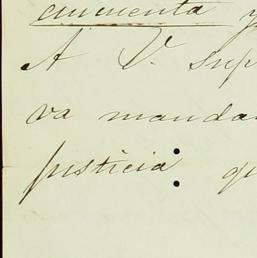 cincuenta y
A V. sup
va manda
justicia: q